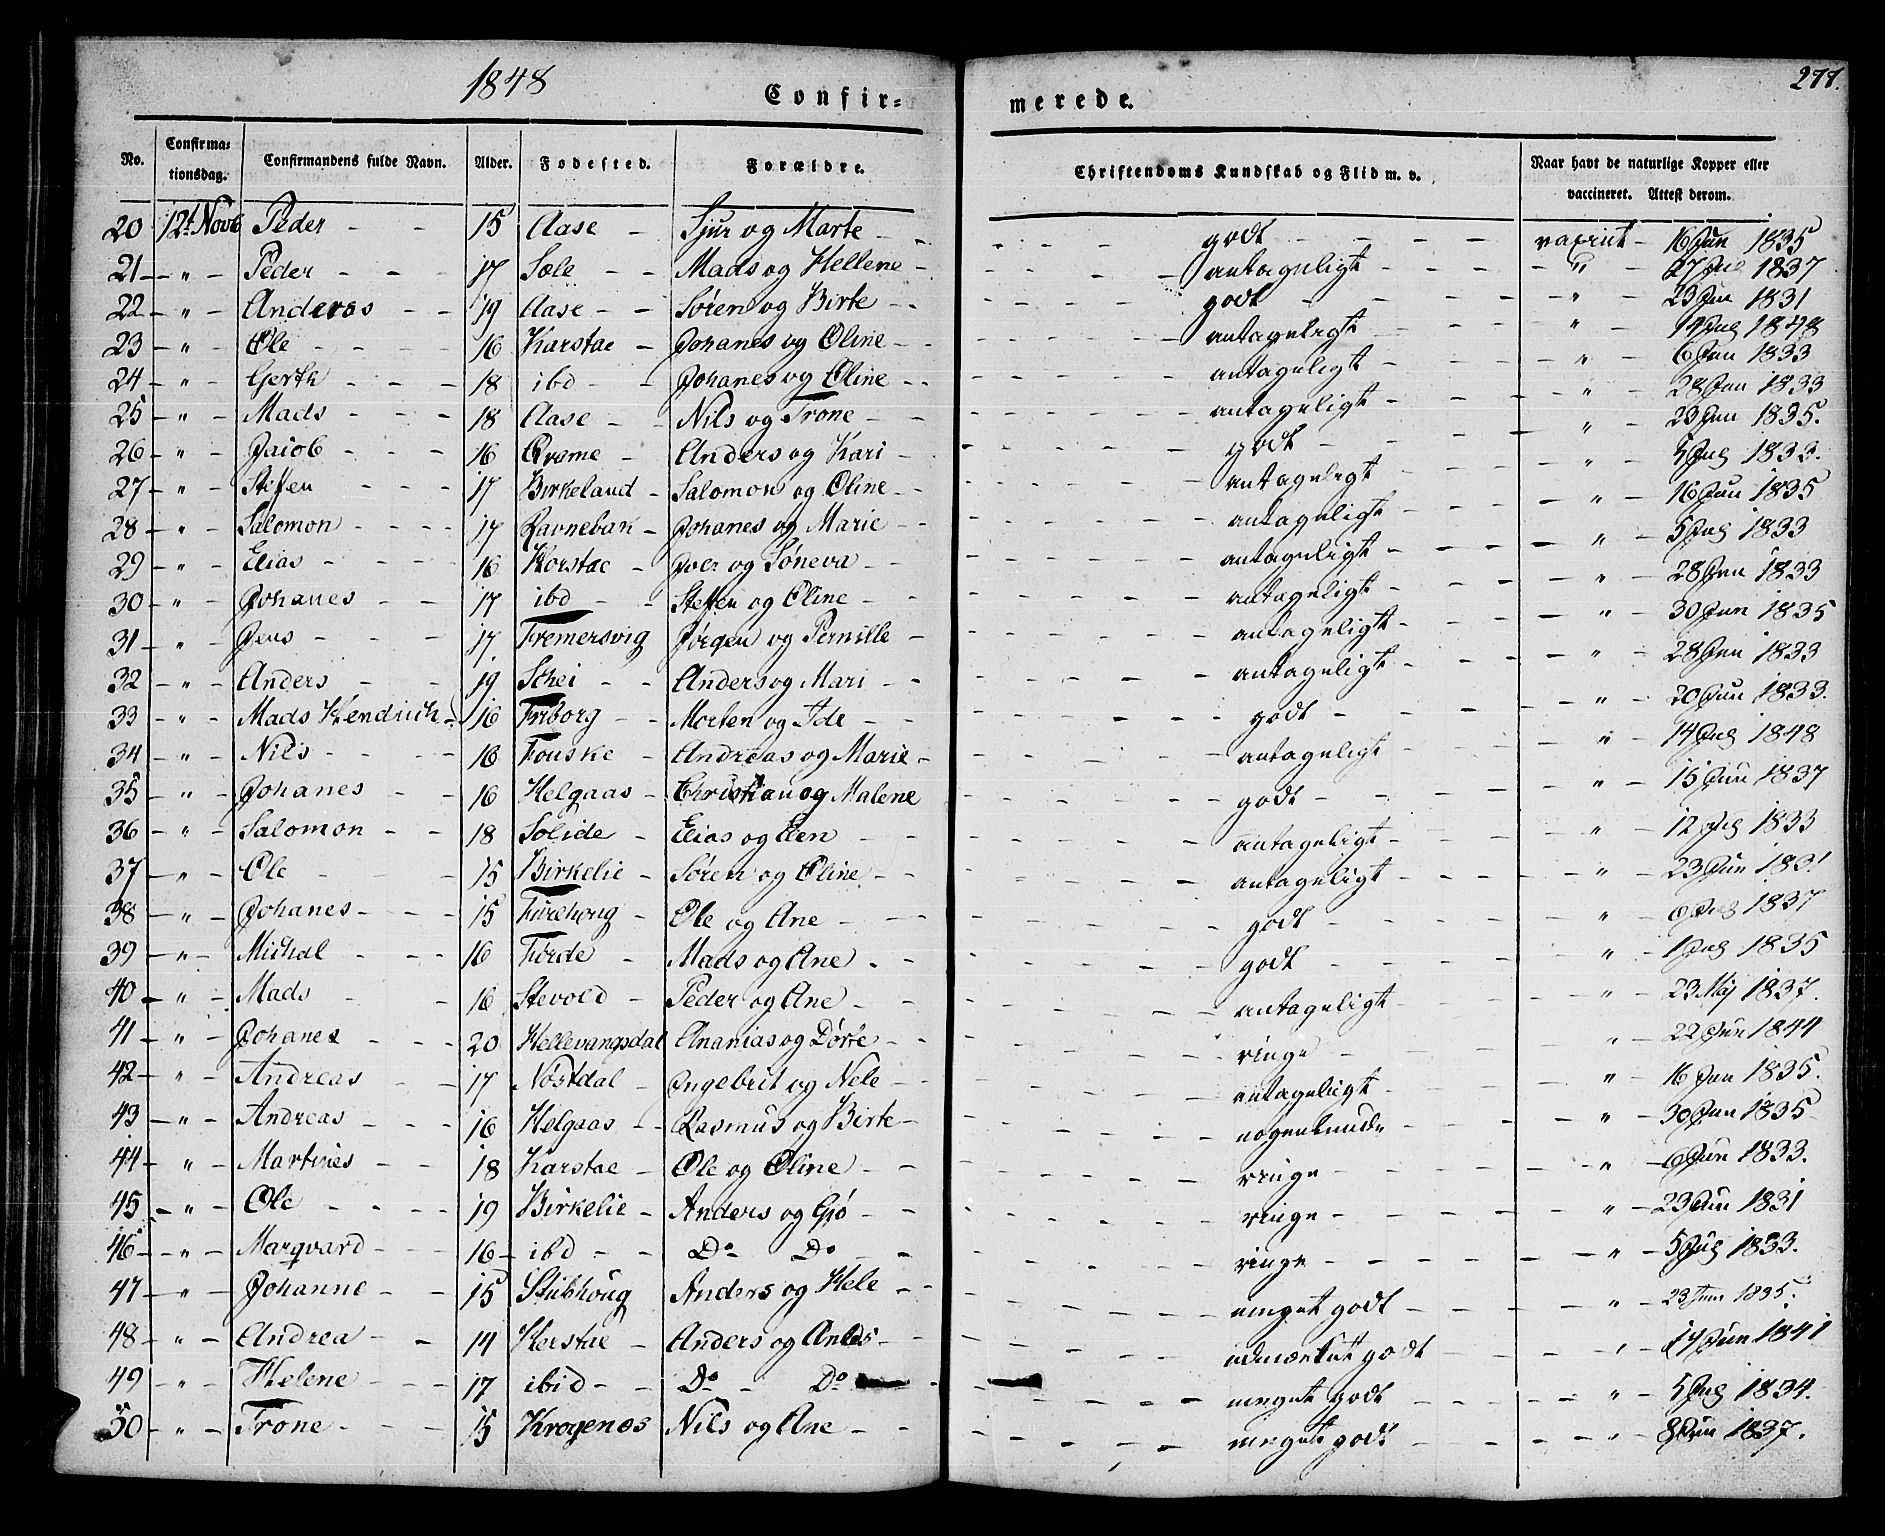 1848
277.
Confir=
merede.
No. Confirmationsdag. Confirmandens fulde Navn. Alder. Fødested. Forældre. Christendoms Kundskab og Flid m. v. Naar havt de naturlige Kopper eller vaccineret. Attest derom.
20 12t Novb Peder - - 15 Aase - - Sjur og Marte - godt 16 Jun 1835
21 - " - Peder - - - 17 Sæle - - Mads og Hellene - antageligt - " - 27 1837
22 - " - Anderas - - 19 Aase - - Søren og Birte - godt - " - 23 Jun 1831
23 - " - Ole - - - 16 Karstae - Johanes og Oline - antageligt - " - 1848
24 - " - Gerth - - - 18 ibd - - Johanes og Oline - antageligt - " - 6 Jun 1833
25 - " - Mads - - - 18 Aase - - Nils og Trone - antageligt - " - 28 Jun 1833
26 - " - Jaiob - - - 16 - Anders og Kari - godt - " - 23 Jun 1835.
27 - " - Steffen - - - 17 Birkeland - Salomon og Oline - antageligt - " - 5 Jul 1833.
28 - " - Salomon - - - 17 Ravnebak - Johanes og Marie - antageligt - " - 16 Jun 1835
29 - " - Elias - - - 16 Korstae - Joer og Søneva - antageligt - " - 5 Jul 1833
30 - " - Johanes - - 17 ibd - - Steffen og Oline - antageligt - " - 28 Jun 1833
31 - " - Jens - - - 17 Tremersvig Jørgen og Pernille - antageligt - " - 30 Jun 1835
32 - " - Anders - - 19 Schei - - Anders og Mari - antageligt - " - 28 Jun 1833
33 - " - Mads Hendrich - 16 - Morten og Ide - godt - " - 20 Jun 1833.
34 - " - Nils - - - 16 Fouske - Andreas og Marie - antageligt - " - 14 Jul 1848
35 - " - Johanes - - 16 Helgaas - Christian og Malene godt - " - 15 Jun 1837
36 - " - Salomon - - 18 Solide - Elias og Elen - antageligt - " - 12 Jul 1833
37 - " - Ole - - - 15 Birkelie - Søren og Oline - antageligt - " - 23 Jun 1831
38 - " - Johanes - - - 15 Førehoug - Ole og Ane - godt - " - 1837
39 - " - Michal - - - 16 Førde - Mads og Ane - godt - " - 1 Jul 1835
40 - " - Mads - - 16 Stevold - Peder og Ane - antageligt - " - 23 Maj 1837.
41 - " - Johanes - - - 20 Hellevangsdal Ananias og Dørte - ringe - " - 22 Jun 1844
42 - " - Andreas - - 17 Nøstdal - Ingebrit og Nele - antageligt - " - 16 Jun 1835.
43 - " - Andreas - - - 16 Helgaas - Rasmus og Birte - nogenlunde - " - 30 Jun 1835
44 - " - Martines - - 18 Karstae - Ole og Oline - ringe - " - 6 Jun 1833.
45 - " - Ole - - - 19 Birkelie - Anders og Gjø - ringe - " - 23 Jun 1831
46 - " - Marqvard - - - 16 - ibd - - Do Do - ringe - " - 5 Jul 1833.
47 - " - Johanne - - 15 Stubhoug Anders og Hele - meget godt - " - 23 Juni 1835.
48 - " - Andrea - - 14 Kerstae - Anders og - udmærket godt - " - 14 Jun 1841
49 - " - Helene - - - 17 ibid - - Do - Do - meget godt - " - 5 Jul 1834.
50 - " - Trone - - - 15 Krogenæs Nils og Ane - meget godt - " - 8 Jun 1837.